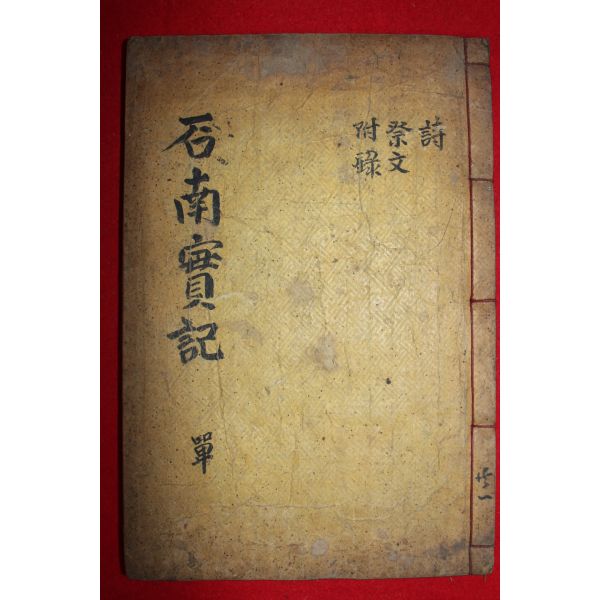 共一
詩
祭文
附錄
石南實記 單